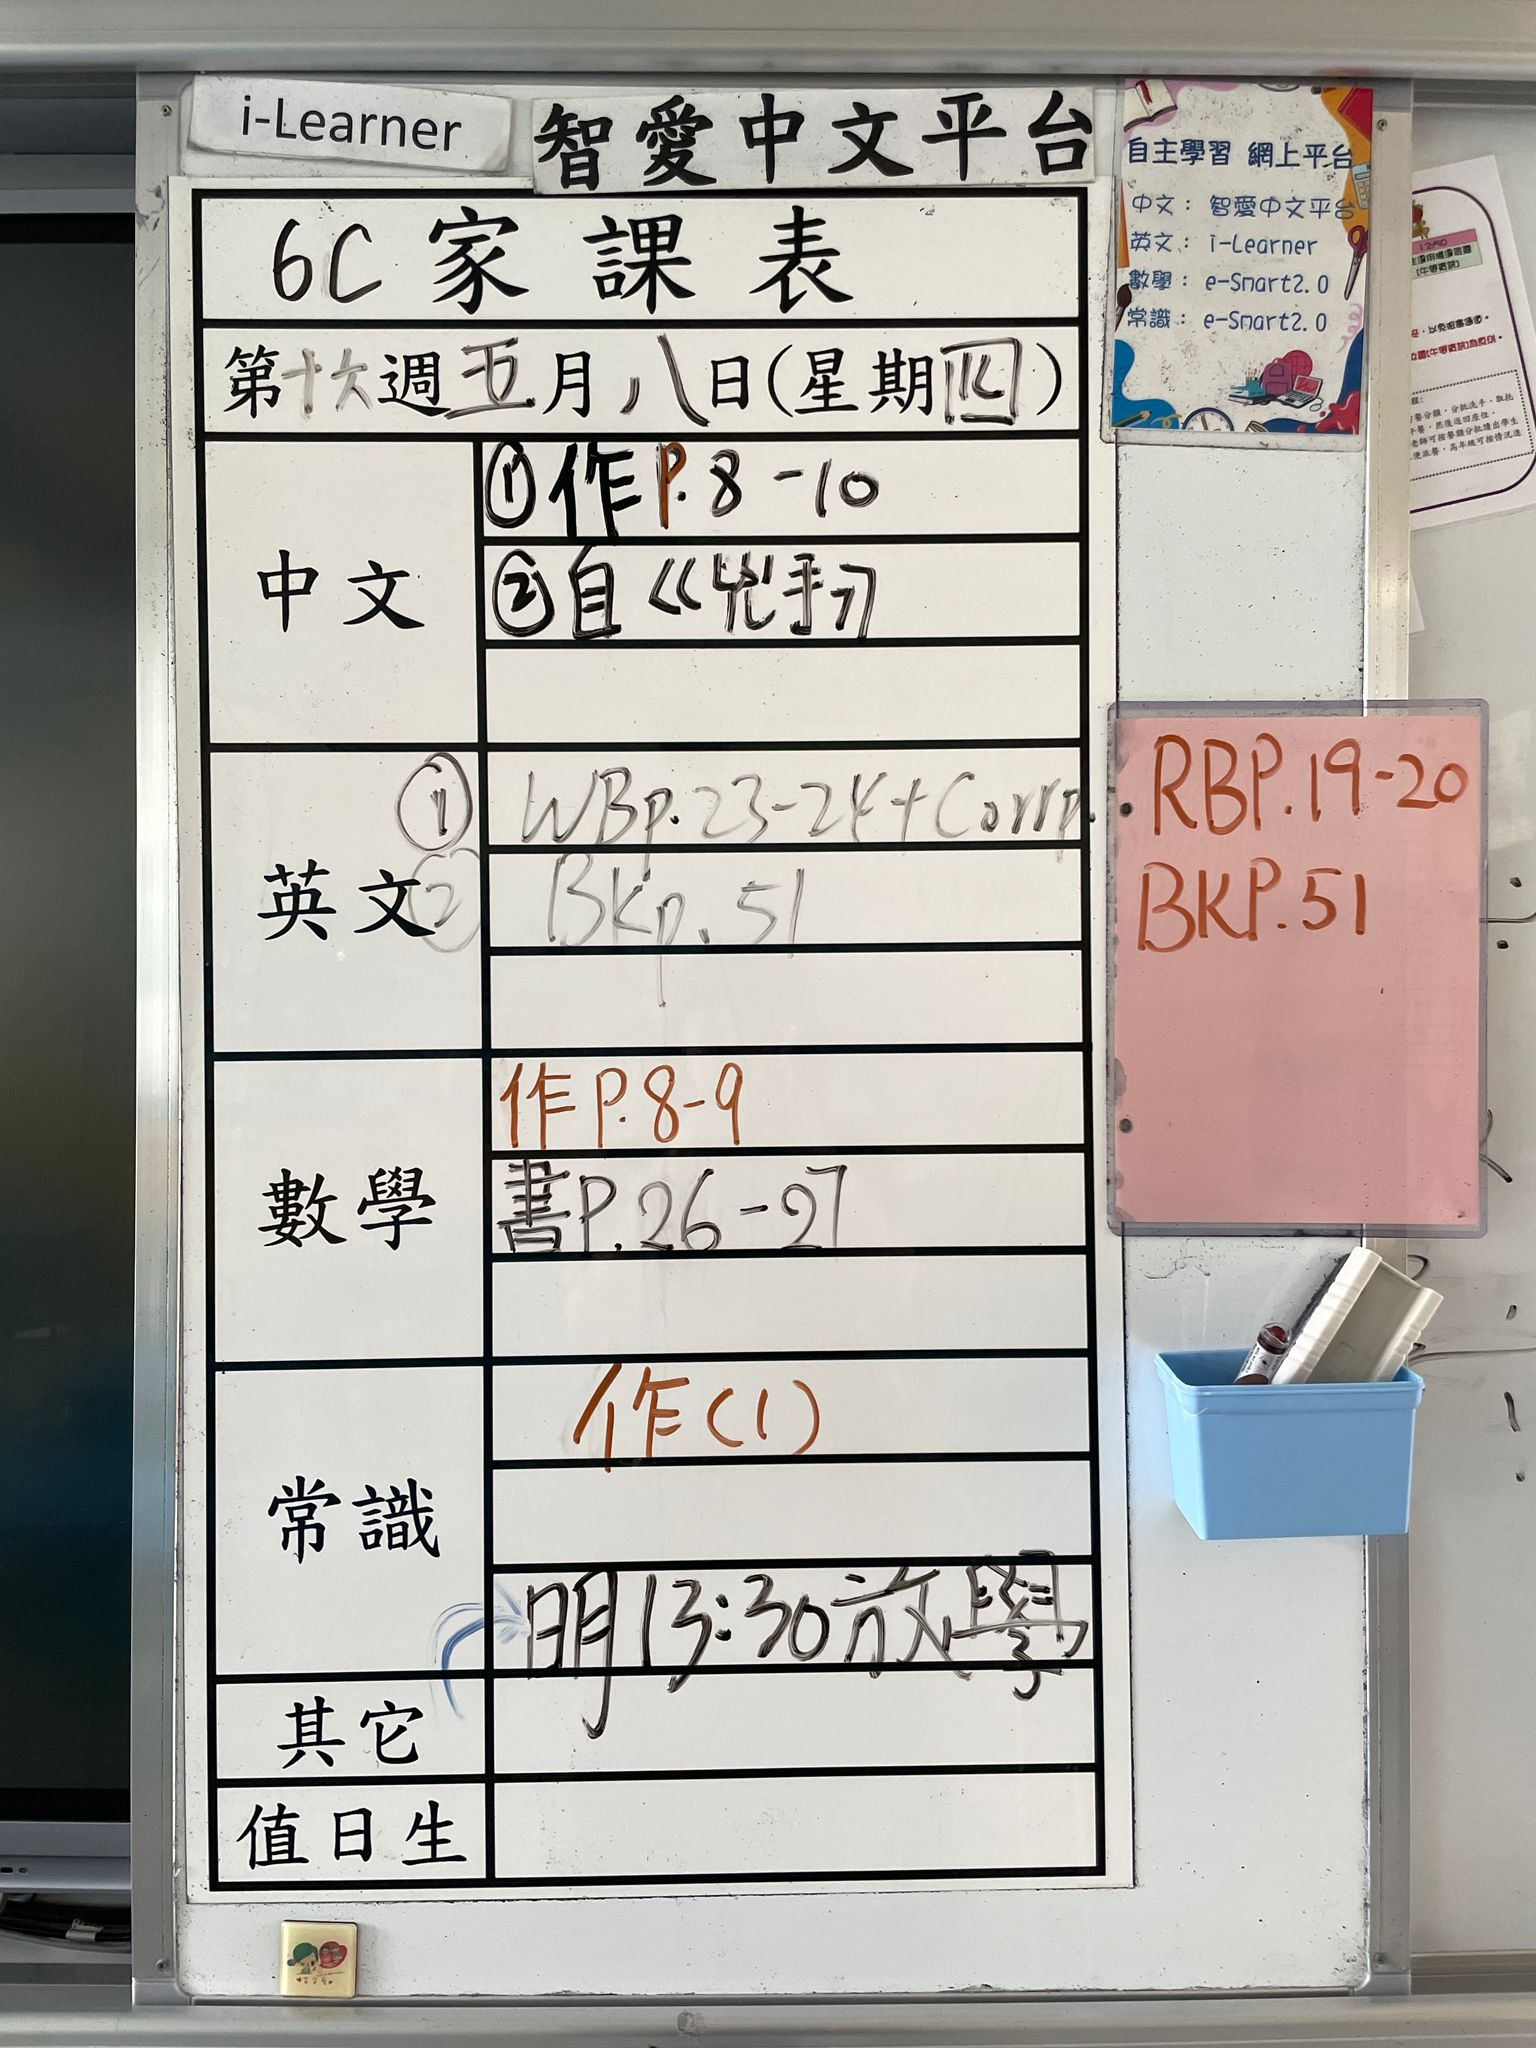 i-Learner
智愛中文平台
6C家課表
第十六週五月八日(星期四)
中文
①作P.8-10
②自《
英文
① WBp.23-24+Corrp.
② BKp.51
數學
作P.8-9
書P.26-27
常識
作(1)
明13:30放學
其它
值日生
自主學習 網上平台
中文：智愛中文平台
英文：i-Learner
數學：e-Smart2.0
常識：e-Smart2.0
RBP.19-20
BKP.51
12:50
，以免阻塞通道。